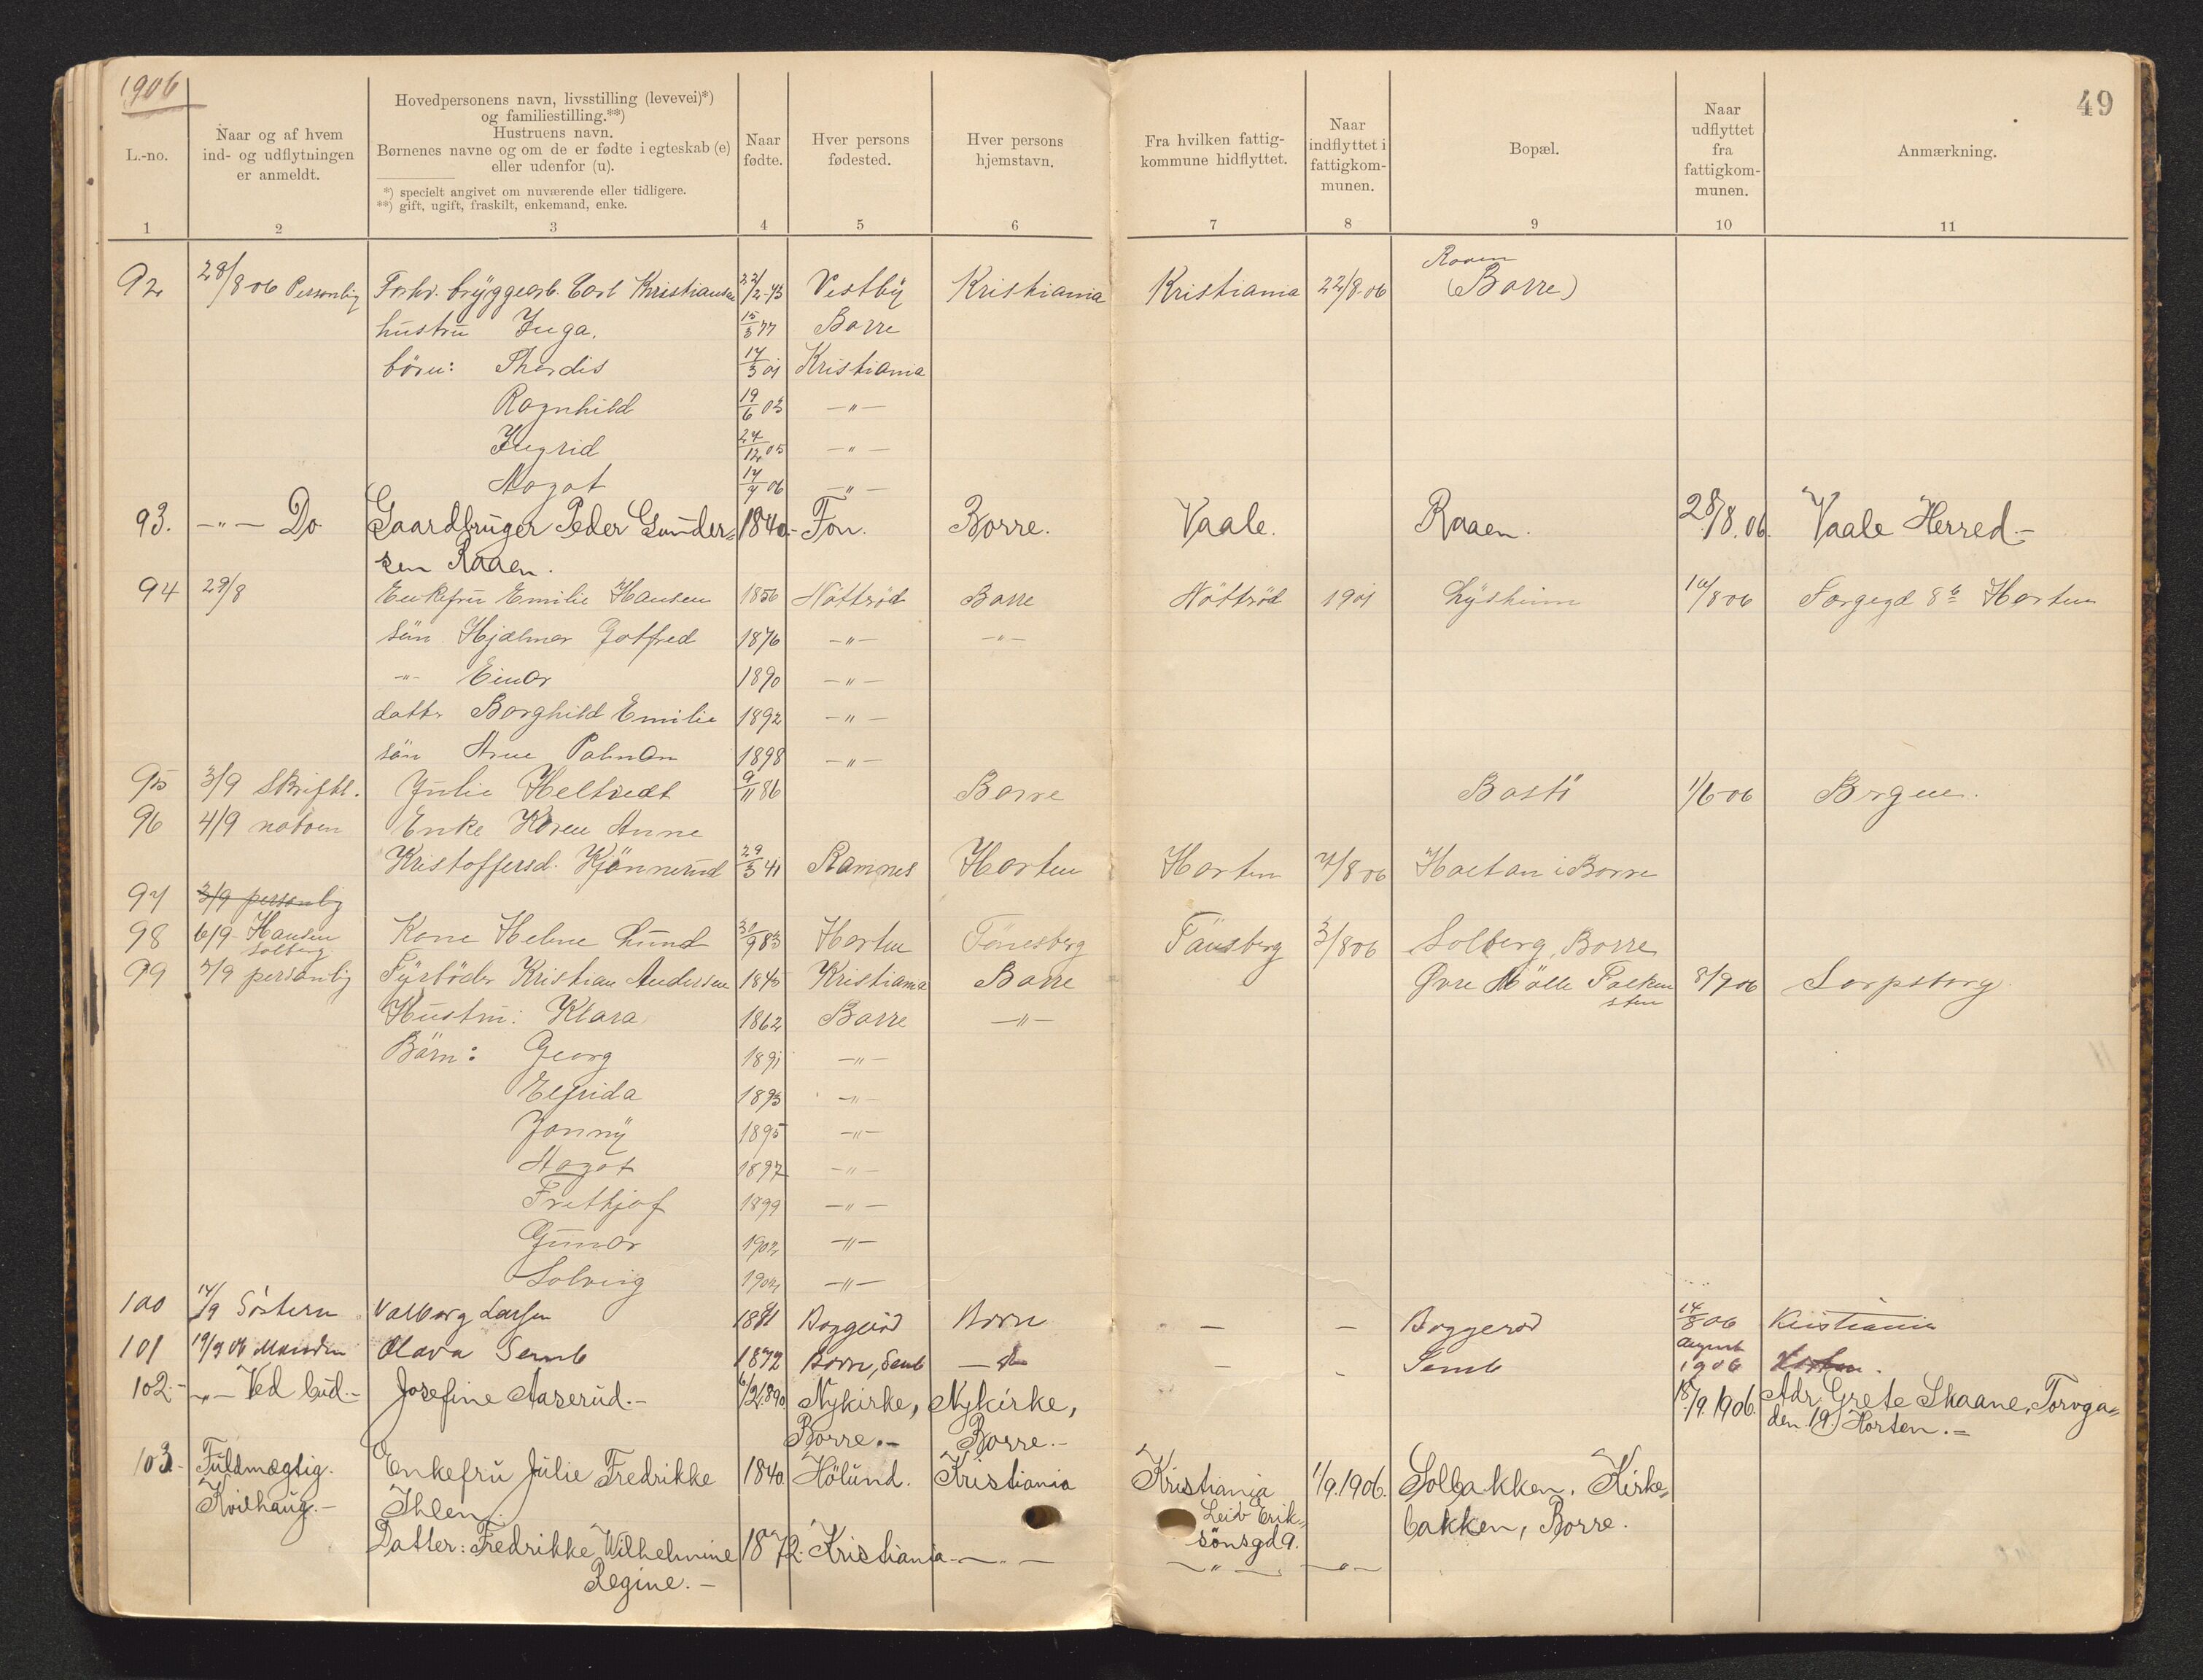 1906
49
L.-no.
Naar og af hvem
ind- og udflytningen
er anmeldt.
Hovedpersonens navn, livsstilling (levevei)*)
og familiestilling.**)
Hustruens navn.
Børnenes navne og om de er fødte i egteskab (e)
eller udenfor (u).
*) specielt angivet om nuværende eller tidligere.
**) gift, ugift, fraskilt, enkemand, enke.
Naar
fødte.
Hver persons
fødested.
Hver persons
hjemstavn.
Fra hvilken fattig-
kommune hidflyttet.
Naar
indflyttet i
fattigkom-
munen.
Bopæl.
Naar
udflyttet
fra
fattigkom-
munen.
Anmærkning.
1 2 3 4 5 6 7 8 9 10 11
Raaen
92 28/8 06 Personlig Forhv. bryggearb. Carl Kristiansen 22/2-43 Vestby Kristiania Kristiania 22/8-06 (Borre)
hustru Inga. 15/3 77 Borre
børn: Thordis 14/3 01 Kristiania
Ragnhild 19/6 03 -"-
Ingrid 24/12 05 -"-
Magot 06 -"-
93. -"- Do Gaardbruger Peder Gunder= 1840.- Fon. Borre. Vaale. Raaen. 28/8.06. Vaale Herred-
sen Raaen.
94 29/8 Enkefru Emilie Hansen 1856 Nøtterø Borre Nøtterø 1901 Lysheim 10/8 06 Torvegd 8b Horten
søn Hjalmar Gotfred 1876 -"- -"-
-"- Einar 1890 -"-
datter Borghild Emilie 1892 -"-
søn Arne Palman 1898 -"-
95 3/9 Skriftl. Julie Heltvedt 9/11 86 Borre Bastø 1/6-06 Brgen.
96 4/9 Enke Karen Anne
Kristoffersd. Kjønnerud 29/3 41 Ramnes Horten Horten 7/8 06 i Borre
97 3/9 personlig
98 6/9 Hansen Kone Helene Lund 30/9 83 Horten Tønsberg Tønsberg 3/8 06 Solberg, Borre
Solberg
99 7/9 personlig Fyrbøder Kristian Andersen 1845 Kristiania Borre Øvre Mølle Falken 8/9 06 Sarpsborg
sten
Hustru: Klara 1862 Borre -"-
Børn: Georg 1891 -"-
Elfrida 1893 -"-
Jonny 1895 -"-
Magot 1897 -"-
Frithjof 1899 -"-
Gunar 1902 -"-
Solveig 1904 -"-
100 14/9 Søsteren Valborg Larsen 1881 Boggerød Borre - - Boggerød 14/8 06 Kristiania
101 19/9 06 Olava Semb 1872 Borre, Semb - - Semb August
1906 Horten.
102.- -"- Ved bud.- Josefine Aaserud.- 6/2.1890 Nykirke, Nykirke, 15/9.1906. Adr. Grete Skaane, Torvga=
Borre.- Borre.- den 19.) Horten.=
103.- Fuldmægtig. Enkefru Julie Fredrikke 1840 Hølund. Kristiania Kristiania 1/9.1906. Solbakken. Kirke=
Kvilhaug.- Ihlen. Leiv Erik= bakken, Borre.
sønsgd 9.
Datter: Fredrikke Wilhelmine 1872. Kristiania -"- -"- -"-
Regine.-